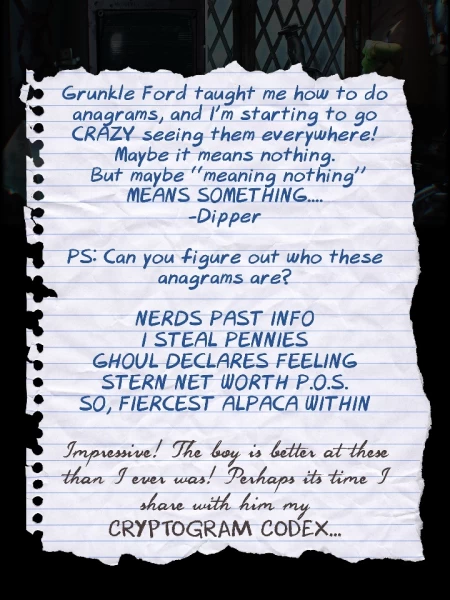 Grunkle Ford taught me how to do
anagrams, and I'm starting to go
CRAZY seeing them everywhere!
Maybe it means nothing.
But maybe "meaning nothing"
MEANS SOMETHING....
-Dipper
PS: Can you figure out who these
anagrams are?
NERDS PAST INFO
I STEAL PENNIES
GHOUL DECLARES FEELING
STERN NET WORTH P.O.S.
SO, FIERCEST ALPACA WITHIN
Impressive! The boy is better at these
than I ever was! Perhaps its time I
share with him my
CRYPTOGRAM CODEX...